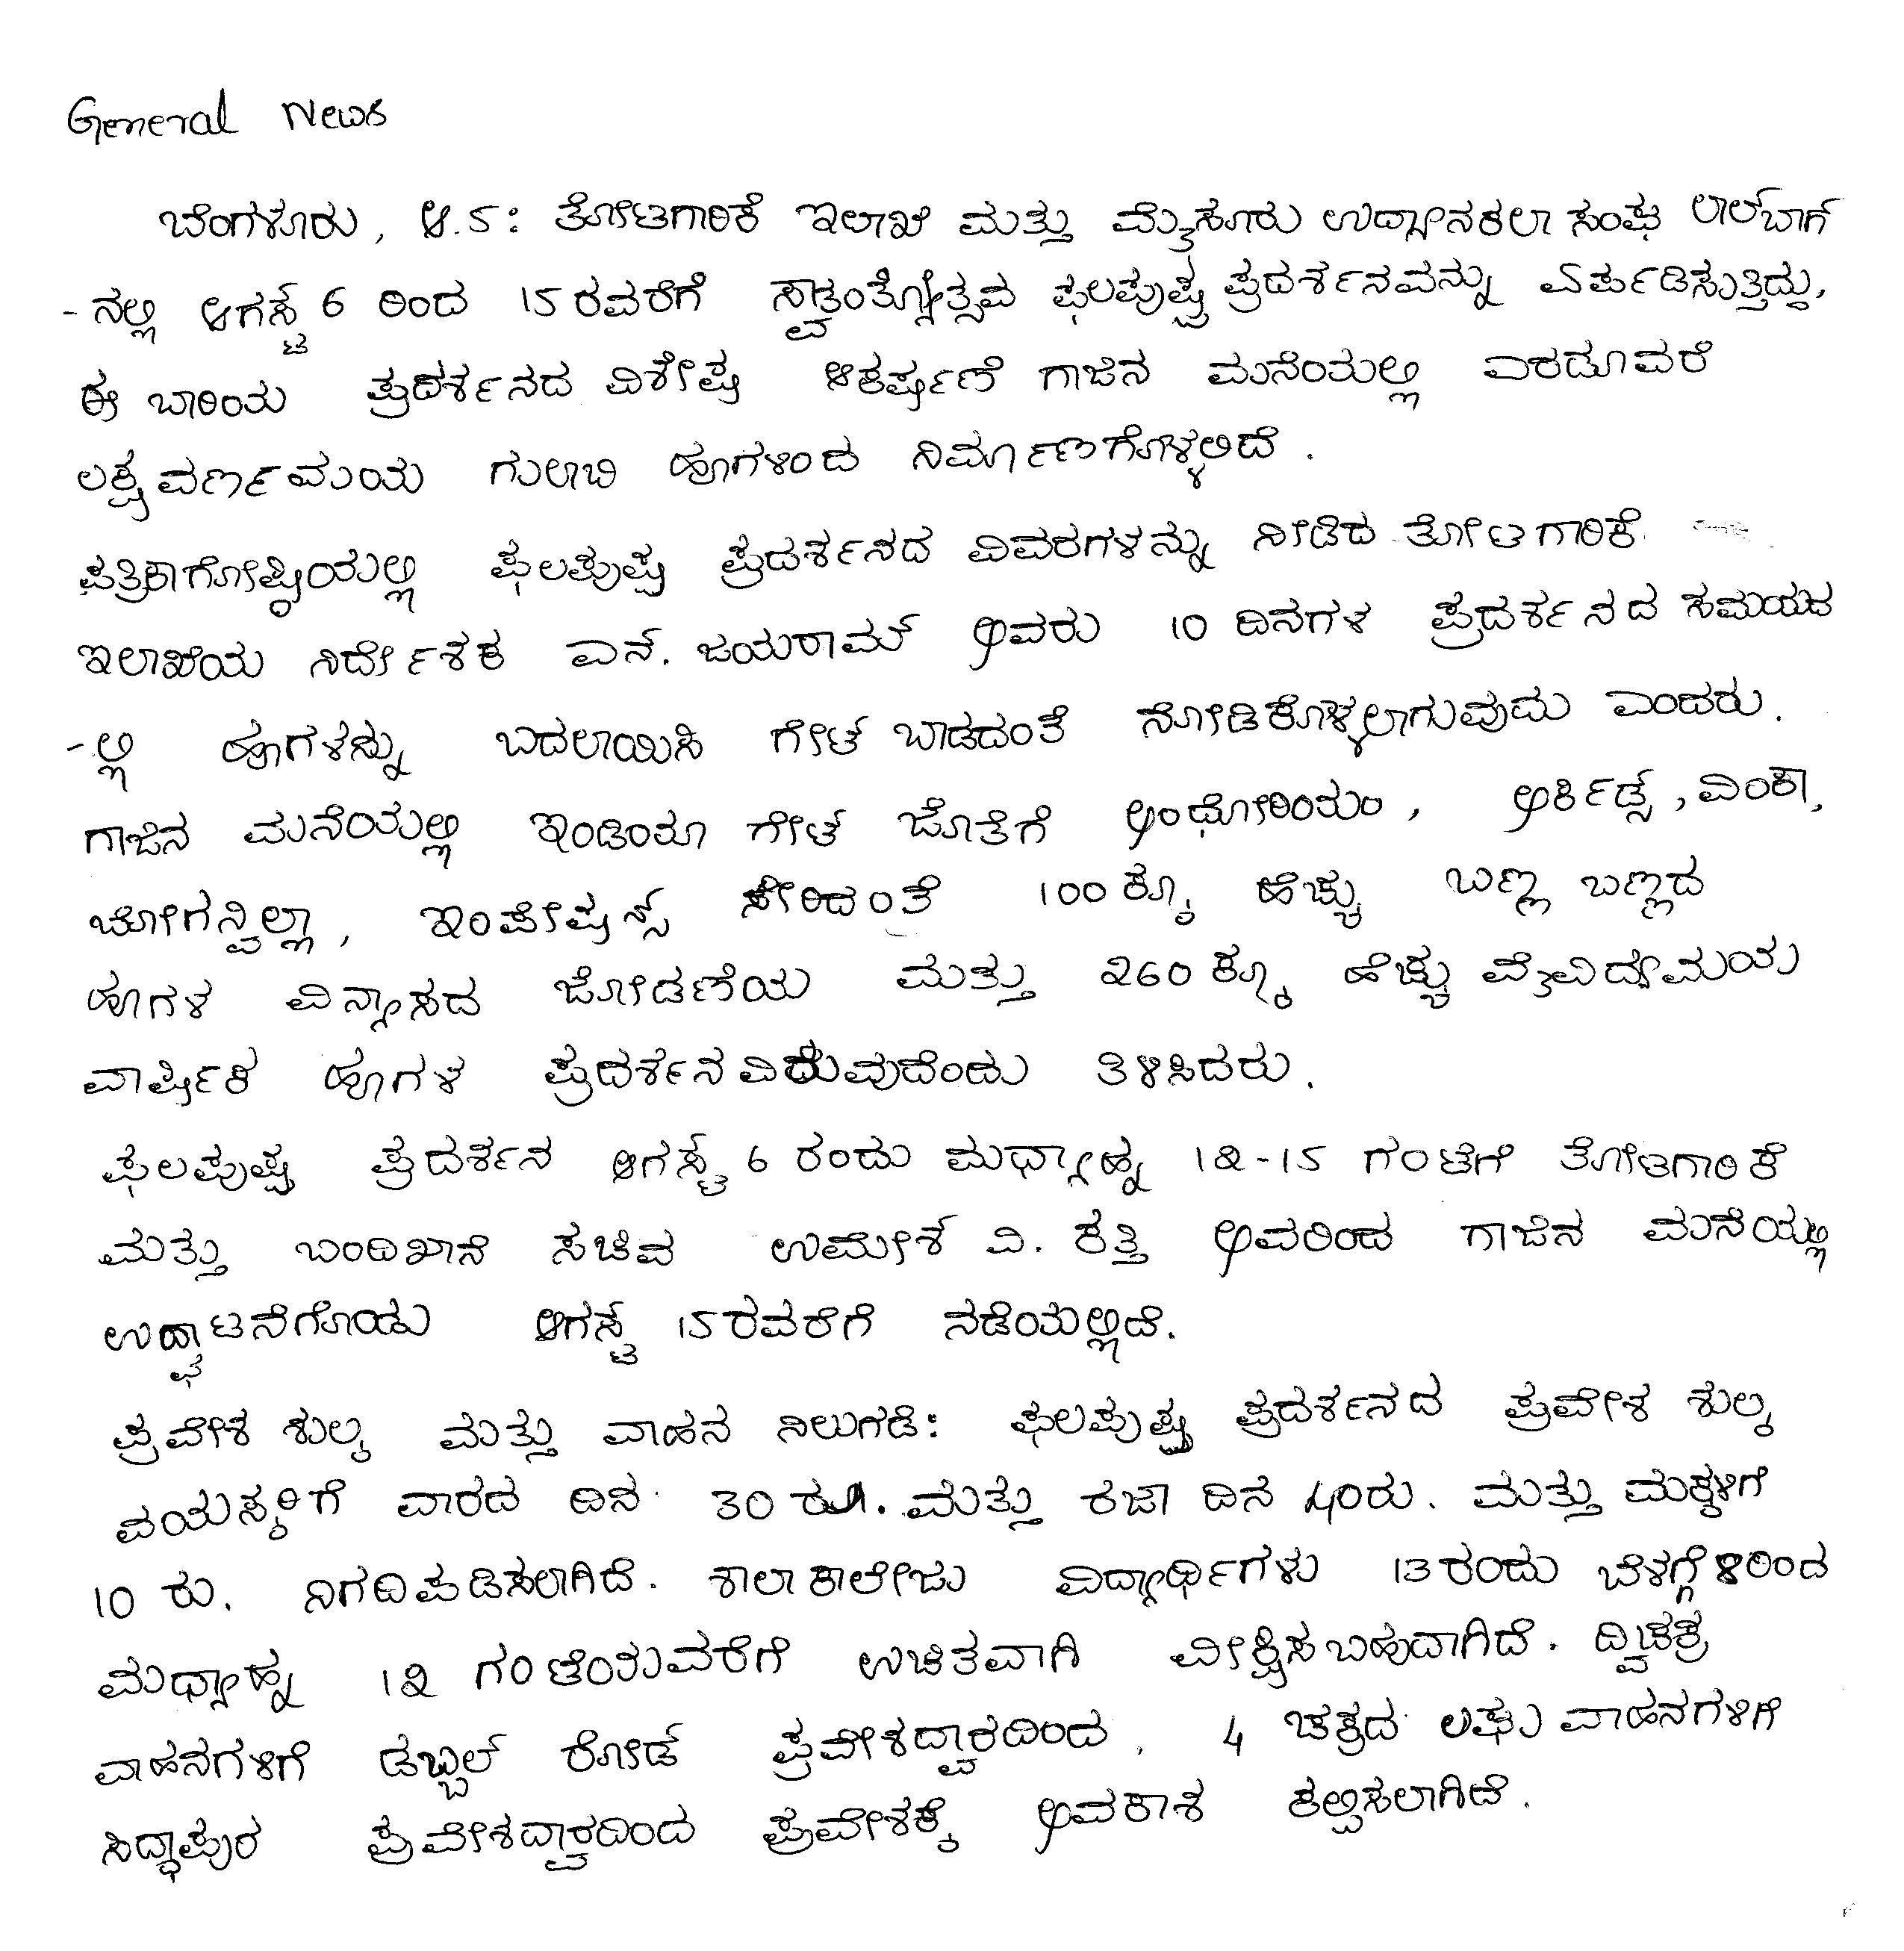 General News
ಬೆಂಗಳೂರು, ಆ.5: ತೋಟಗಾರಿಕೆ ಇಲಾಖೆ ಮತ್ತು ಮೈಸೂರು ಉದ್ಯಾನಕಲಾ ಸಂಘ ಲಾಲ್‌ಬಾಗ್
-ನಲ್ಲಿ ಆಗಸ್ಟ್ 6 ರಿಂದ 15ರವರೆಗೆ ಸ್ವಾತಂತ್ರ್ಯೋತ್ಸವ ಫಲಪುಷ್ಪ ಪ್ರದರ್ಶನವನ್ನು ಏರ್ಪಡಿಸುತ್ತಿದ್ದು,
ಈ ಬಾರಿಯ ಪ್ರದರ್ಶನದ ವಿಶೇಷ ಆಕರ್ಷಣೆ ಗಾಜಿನ ಮನೆಯಲ್ಲಿ ಎರಡೂವರೆ
ಲಕ್ಷ ವರ್ಣಮಯ ಗುಲಾಬಿ ಹೂಗಳಿಂದ ನಿರ್ಮಾಣಗೊಳ್ಳಲಿದೆ.
ಪತ್ರಿಕಾಗೋಷ್ಠಿಯಲ್ಲಿ ಫಲಪುಷ್ಪ ಪ್ರದರ್ಶನದ ವಿವರಗಳನ್ನು ನೀಡಿದ ತೋಟಗಾರಿಕೆ
ಇಲಾಖೆಯ ನಿರ್ದೇಶಕ ಎನ್. ಜಯರಾಮ್ ಅವರು 10 ದಿನಗಳ ಪ್ರದರ್ಶನದ ಸಮಯದ
-ಲ್ಲಿ ಹೂಗಳನ್ನು ಬದಲಾಯಿಸಿ ಗೇಟ್ ಬಾಡದಂತೆ ನೋಡಿಕೊಳ್ಳಲಾಗುವುದು ಎಂದರು.
ಗಾಜಿನ ಮನೆಯಲ್ಲಿ ಇಂಡಿಯಾ ಗೇಟ್ ಜೊತೆಗೆ ಅಂಥೋರಿಯಂ, ಅರ್ಕಿಡ್ಸ್, ವಿಂಕಾ,
ಬೋಗನ್ವಿಲ್ಲಾ, ಇಂಪೇಷನ್ಸ್ ಸೇರಿದಂತೆ 100ಕ್ಕೂ ಹೆಚ್ಚು ಬಣ್ಣ ಬಣ್ಣದ
ಹೂಗಳ ವಿನ್ಯಾಸದ ಜೋಡಣೆಯ ಮತ್ತು 260ಕ್ಕೂ ಹೆಚ್ಚು ವೈವಿಧ್ಯಮಯ
ವಾರ್ಷಿಕ ಹೂಗಳ ಪ್ರದರ್ಶನವಿರುವುದೆಂದು ತಿಳಿಸಿದರು.
ಫಲಪುಷ್ಪ ಪ್ರದರ್ಶನ ಆಗಸ್ಟ್ 6 ರಂದು ಮಧ್ಯಾಹ್ನ 12-15 ಗಂಟೆಗೆ ತೋಟಗಾರಿಕೆ
ಮತ್ತು ಬಂದಿಖಾನೆ ಸಚಿವ ಉಮೇಶ ವಿ. ಕತ್ತಿ ಅವರಿಂದ ಗಾಜಿನ ಮನೆಯಲ್ಲಿ
ಉದ್ಘಾಟನೆಗೊಂಡು ಆಗಸ್ಟ್ 15ರವರೆಗೆ ನಡೆಯಲ್ಲಿದೆ.
ಪ್ರವೇಶ ಶುಲ್ಕ ಮತ್ತು ವಾಹನ ನಿಲುಗಡೆ: ಫಲಪುಷ್ಪ ಪ್ರದರ್ಶನದ ಪ್ರವೇಶ ಶುಲ್ಕ
ವಯಸ್ಕರಿಗೆ ವಾರದ ದಿನ 30 ರೂ. ಮತ್ತು ರಜಾ ದಿನ 40ರು. ಮತ್ತು ಮಕ್ಕಳಿಗೆ
10 ರು. ನಿಗದಿಪಡಿಸಲಾಗಿದೆ. ಶಾಲಾ ಕಾಲೇಜು ವಿದ್ಯಾರ್ಥಿಗಳು 13ರಂದು ಬೆಳಗ್ಗೆ 8ರಿಂದ
ಮಧ್ಯಾಹ್ನ 12 ಗಂಟೆಯವರೆಗೆ ಉಚಿತವಾಗಿ ವೀಕ್ಷಿಸಬಹುದಾಗಿದೆ. ದ್ವಿಚಕ್ರ
ವಾಹನಗಳಿಗೆ ಡಬ್ಬಲ್ ರೋಡ್ ಪ್ರವೇಶದ್ವಾರದಿಂದ, 4 ಚಕ್ರದ ಲಘು ವಾಹನಗಳಿಗೆ
ಸಿದ್ಧಾಪುರ ಪ್ರವೇಶದ್ವಾರದಿಂದ ಪ್ರವೇಶಕ್ಕೆ ಅವಕಾಶ ಕಲ್ಪಿಸಲಾಗಿದೆ.